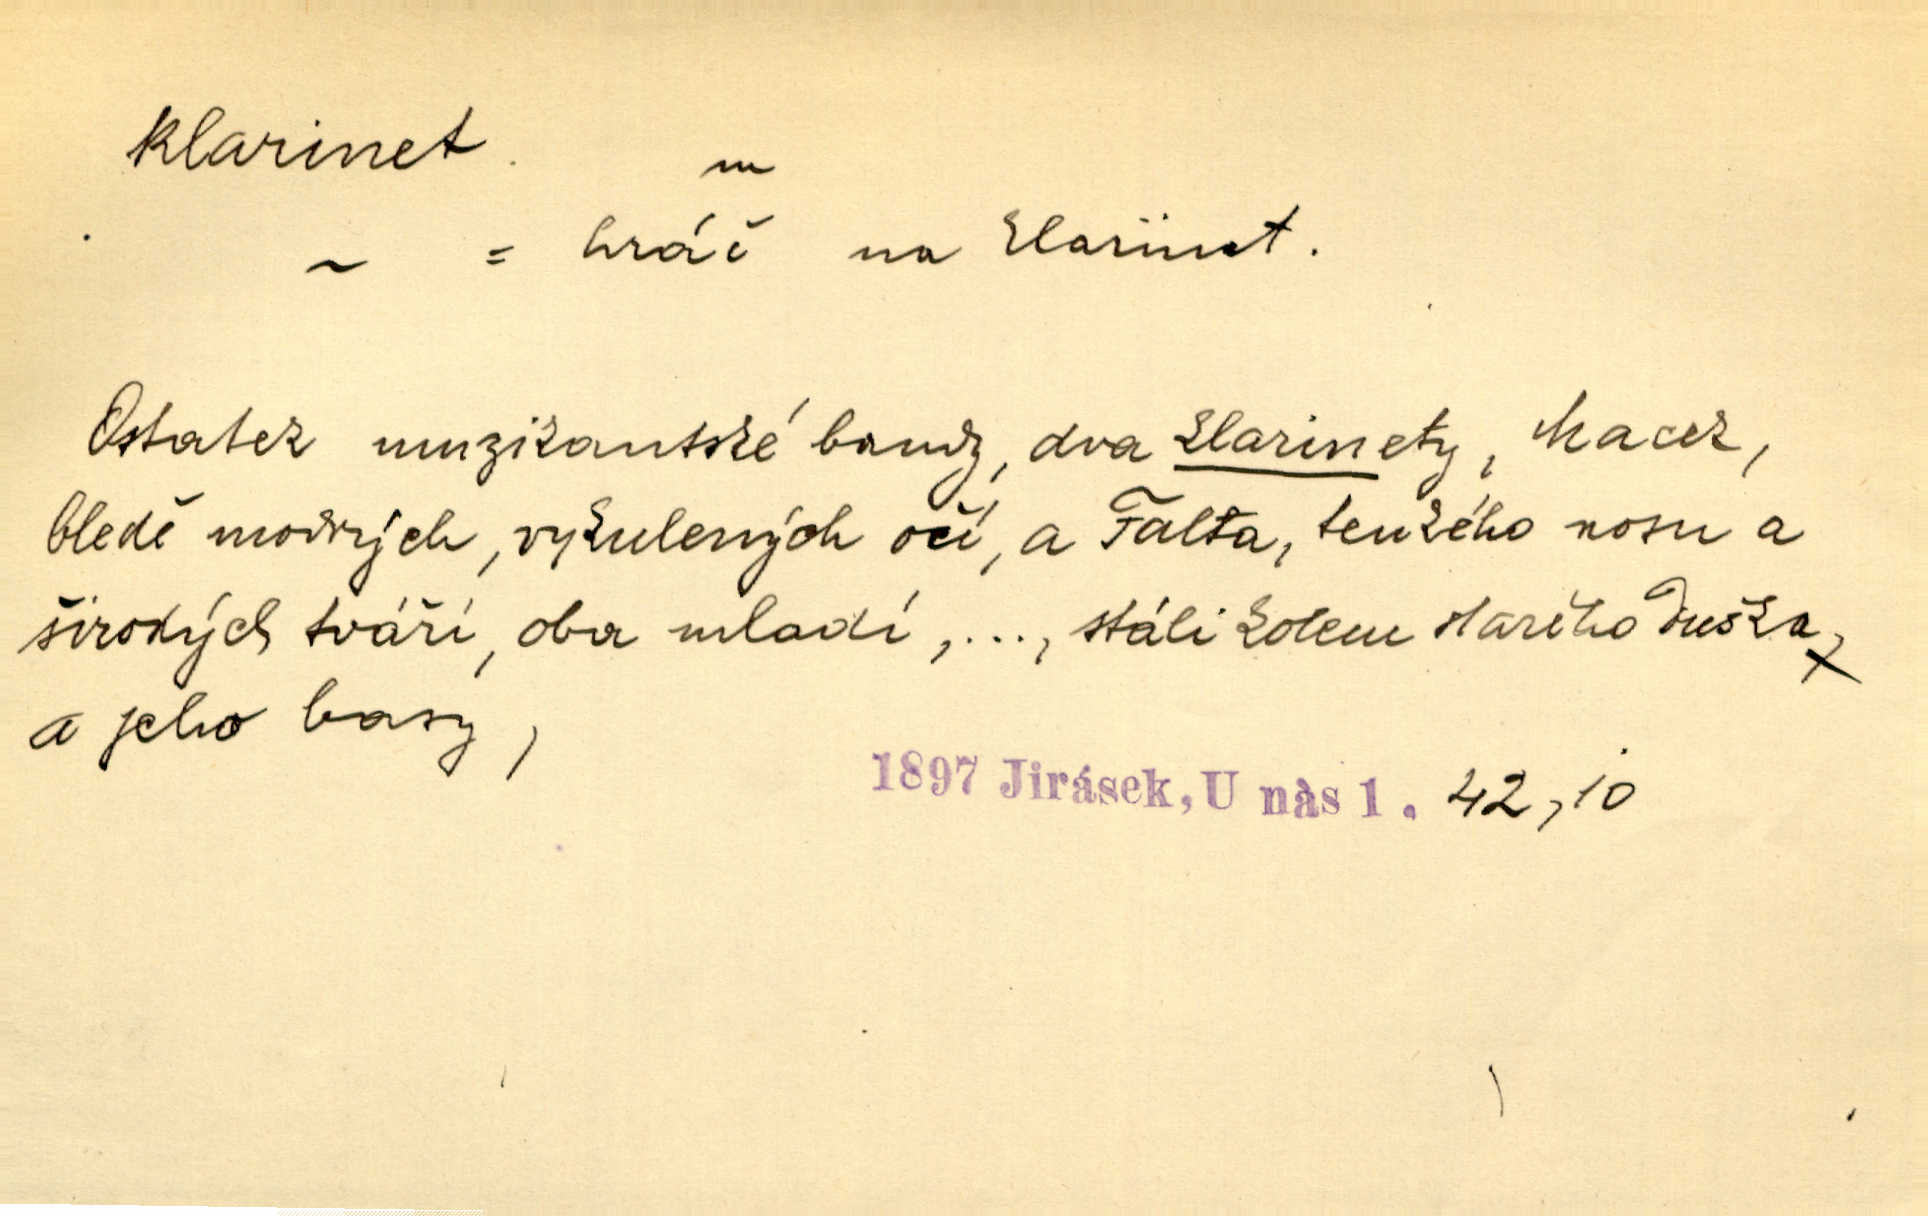 klarinet m
~ = hráč na klarinet.
Ostatek muzikantské bandy, dva klarinety, Macek,
bledě modrých, vykulených očí, a Falta, tenkého nosu a
širokých tváří, oba mladí, ..., stáli kolem starého Duška,
a jeho basy,
1897 Jirásek, U nàs 1. 42, 10